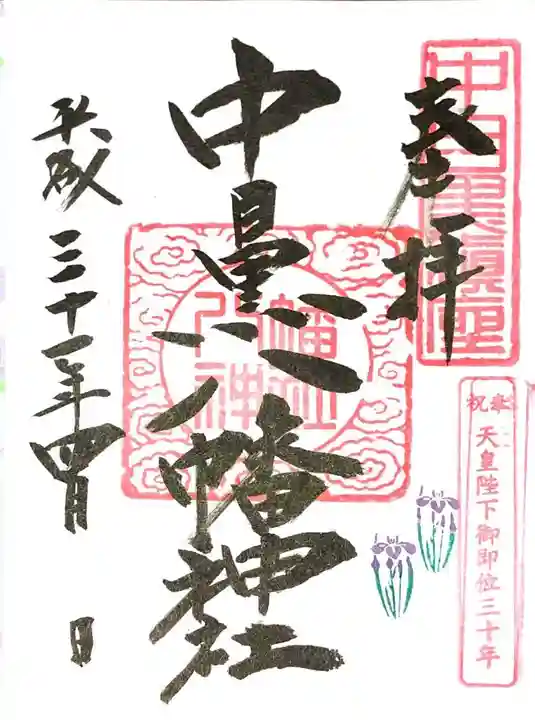 奉拝
中目黒鎮座
奉祝 天皇陛下御即位三十年
中目黒八幡神社
八幡神社
平成三十一年四月 日